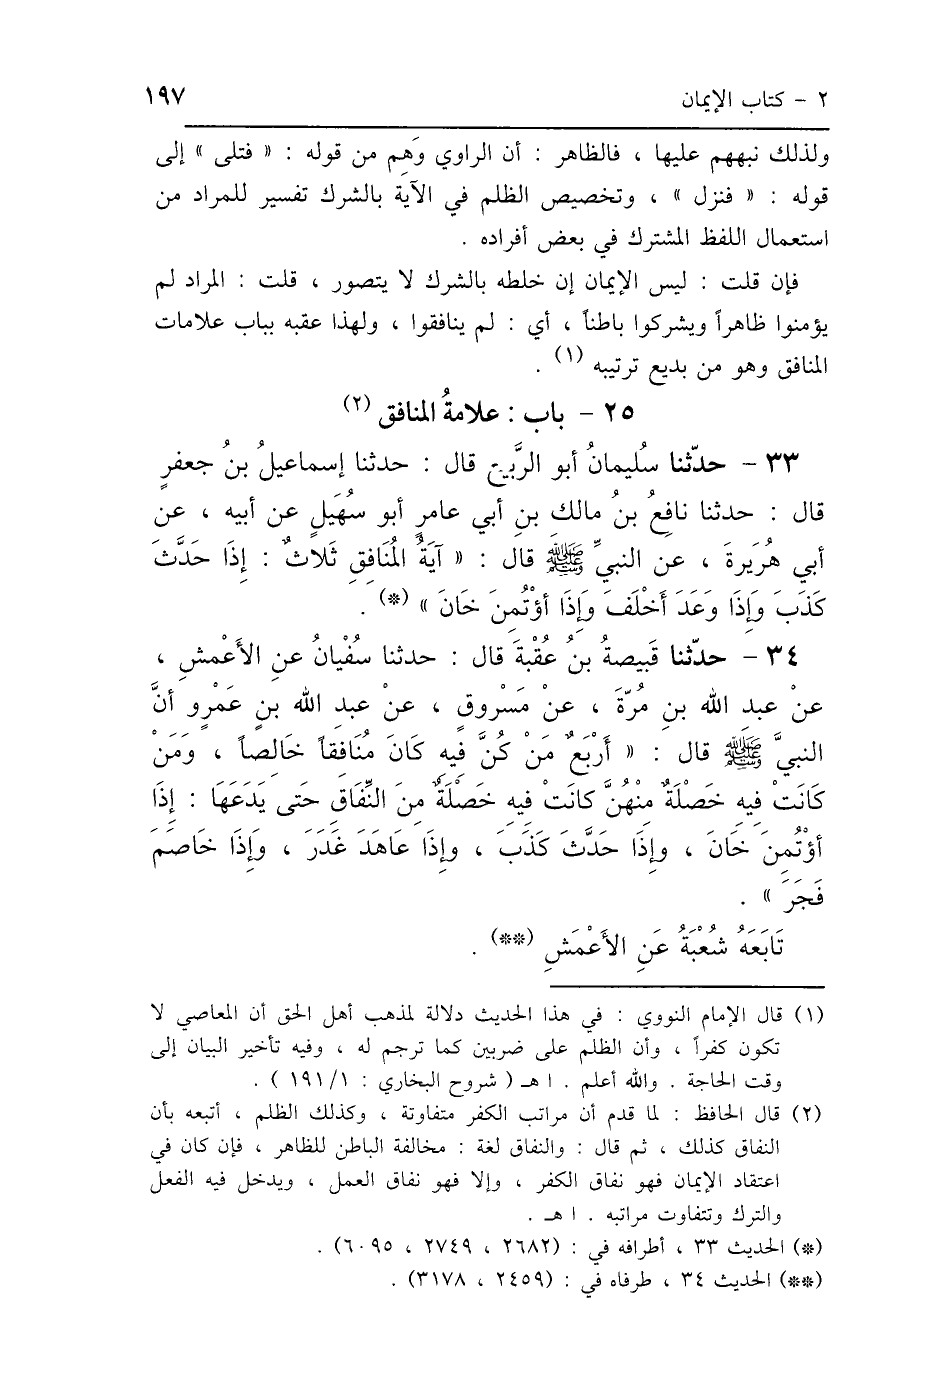 ٢ - كتاب الإيمان ١٩٧
ولذلك نبههم عليها ، فالظاهر : أن الراوي وَهِم من قوله : « فتلى » إلى
قوله : « فنزل » ، وتخصيص الظلم في الآية بالشرك تفسير للمراد من
استعمال اللفظ المشترك في بعض أفراده .
فإن قلت : ليس الإيمان إن خلطه بالشرك لا يتصور ، قلت : المراد لم
يؤمنوا ظاهراً ويشركوا باطناً ، أي : لم ينافقوا ، ولهذا عقبه بباب علامات
المنافق وهو من بديع ترتيبه (١) .
٢٥ - باب : علامةُ المنافق (٢)
٣٣ - حدّثنا سُليمانُ أبو الرَّبيع قال : حدثنا إسماعيلُ بنُ جعفرٍ
قال : حدثنا نافِعُ بنُ مالكِ بنِ أبي عامرٍ أبو سُهَيلٍ عن أبيه ، عن
أبي هُرَيرةَ ، عن النبيِّ ﷺ قال : « آيَةُ المُنَافِقِ ثَلاثٌ : إذَا حَدَّثَ
كَذَبَ وَإِذَا وَعَدَ أَخْلَفَ وَإِذَا أؤْتُمِنَ خَانَ » (*) .
٣٤ - حدّثنا قَبيصةُ بنُ عُقْبةَ قال : حدثنا سُفْيانُ عنِ الأَعْمشِ ،
عنْ عبدِ الله بنِ مُرّةَ ، عنْ مَسْروقٍ ، عنْ عبدِ الله بنِ عَمْرٍو أنَّ
النبيَّ ﷺ قال : « أَرْبَعٌ مَنْ كُنَّ فِيهِ كَانَ مُنَافِقاً خَالِصاً ، وَمَنْ
كَانَتْ فِيهِ خَصْلَةٌ مِنْهُنَّ كانَتْ فِيهِ خَصْلَةٌ مِنَ النِّفَاقِ حَتى يَدَعَهَا : إذَا
أؤْتُمِنَ خَانَ ، وإذَا حَدَّثَ كَذَبَ ، وإذَا عَاهَدَ غَدَرَ ، وَإِذَا خَاصَمَ
فَجَرَ » .
تَابَعَهُ شُعْبَةُ عَنِ الأَعْمَشِ (**) .
(١) قال الإمام النووي : في هذا الحديث دلالة لمذهب أهل الحق أن المعاصي لا
تكون كفراً ، وأن الظلم على ضربين كما ترجم له ، وفيه تأخير البيان إلى
وقت الحاجة . والله أعلم . ا هـ ( شروح البخاري : ١٩١/١ ) .
(٢) قال الحافظ : لما قدم أن مراتب الكفر متفاوتة ، وكذلك الظلم ، أتبعه بأن
النفاق كذلك ، ثم قال : والنفاق لغة : مخالفة الباطن للظاهر ، فإن كان في
اعتقاد الإيمان فهو نفاق الكفر ، وإلا فهو نفاق العمل ، ويدخل فيه الفعل
والترك وتتفاوت مراتبه . ا هـ .
(*) الحديث ٣٣ ، أطرافه في : (٢٦٨٢ ، ٢٧٤٩ ، ٦٠٩٥) .
(**) الحديث ٣٤ ، طرفاه في : (٢٤٥٩ ، ٣١٧٨) .